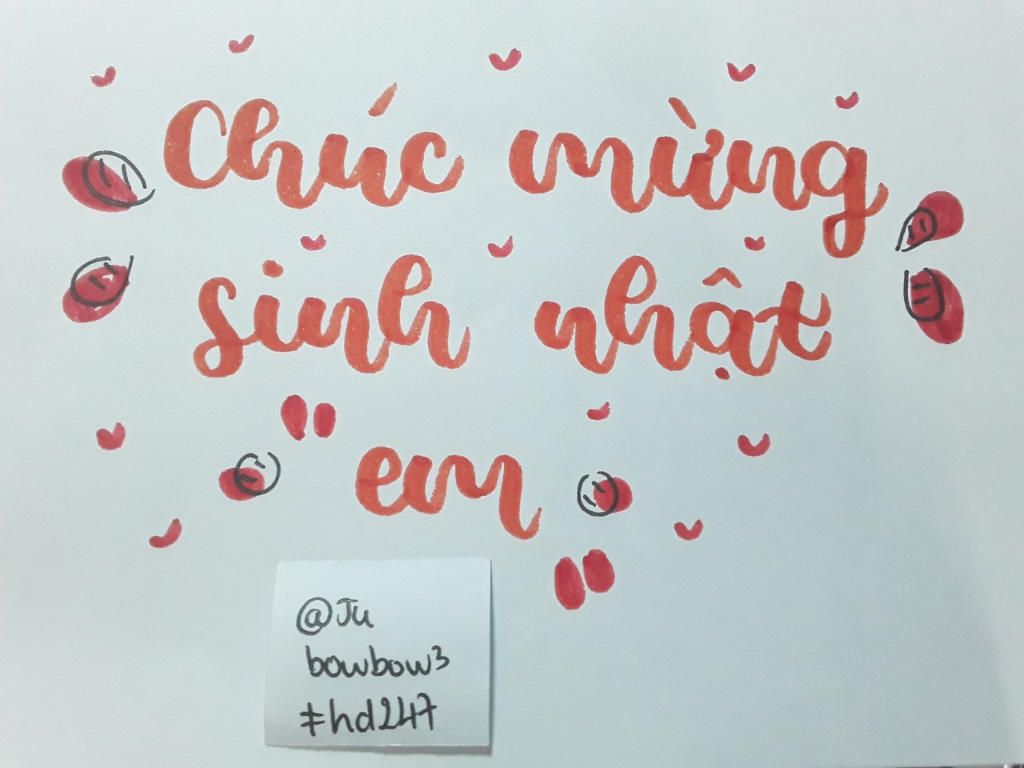 Chúc mừng
sinh nhật
"em"
@Ju
bowbow3
#hd247